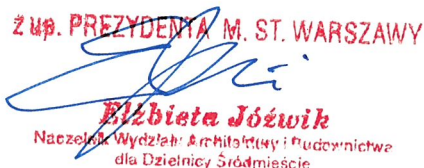 z up. PREZYDENTA M. ST. WARSZAWY
Elżbieta Jóźwik
Naczelnik Wydziału Architektury i Budownictwa
dla Dzielnicy Śródmieście